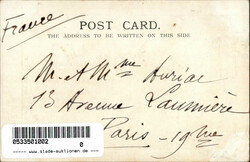 France
POST CARD.
THE ADDRESS TO BE WRITTEN ON THIS SIDE
M. & Mme Auriac
13 Avenue Laumière
Paris - 19ème
0533501002
0
www.slade-auktionen.de